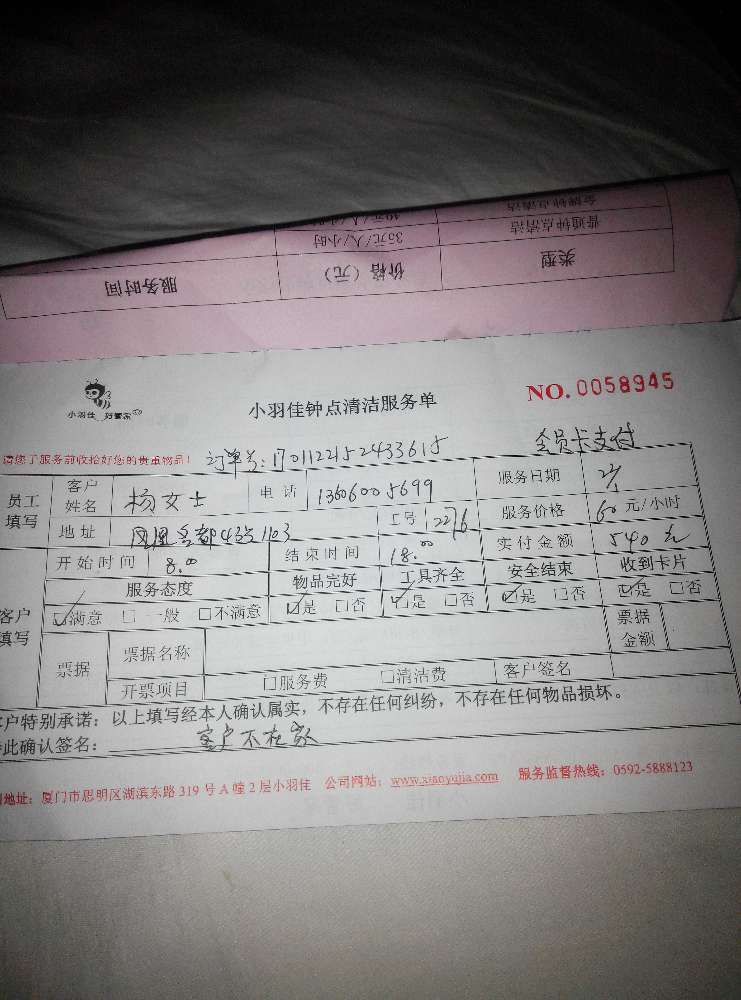 服务时间 价格（元） 类型
35元/人/小时 普通钟点清洁
金牌钟点清洁
小羽佳 好管家
小羽佳钟点清洁服务单
NO.0058945
请您于服务前收拾好您的贵重物品！ 订单号:1701122152433615 会员卡支付
员工填写 客户姓名 杨女士 电话 13606005699 服务日期
地址 凤凰名都4号1103 工号 2276 服务价格 60 元/小时
开始时间 8.00 结束时间 18.00 实付金额 540元
客户填写 服务态度 物品完好 工具齐全 安全结束 收到卡片
☑满意 □一般 □不满意 ☑是 □否 ☑是 □否 ☑是 □否 ☑是 □否
票据 票据名称 票据金额
开票项目 □服务费 □清洁费 客户签名
客户特别承诺：以上填写经本人确认属实，不存在任何纠纷，不存在任何物品损坏。
此确认签名： 客户不在家
地址：厦门市思明区湖滨东路319号A幢2层小羽佳 公司网站：www.xiaoyujia.com 服务监督热线：0592-5888123